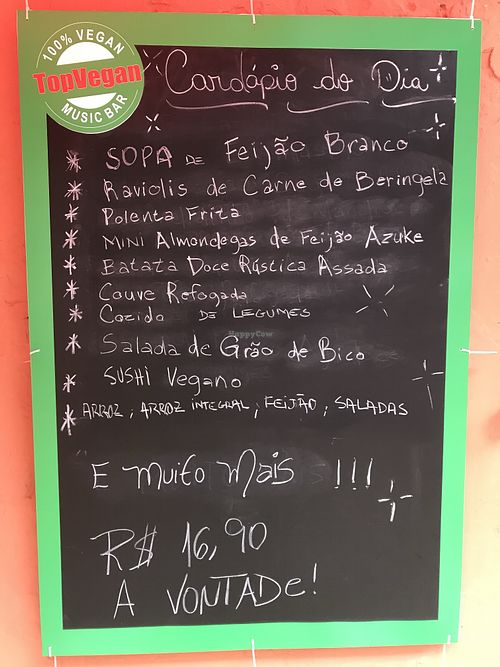 100% VEGAN
TopVegan
MUSIC BAR
Cardápio do Dia
* SOPA DE Feijão Branco
* Raviolis de Carne de Beringela
* Polenta Frita
* MINI Almondegas de Feijão Azuke
* Batata Doce Rústica Assada
* Couve Refogada
* Cozido DE LEGUMES
* Salada de Grão de Bico
* SUSHI Vegano
* ARROZ, ARROZ INTEGRAL, FEIJÃO, SALADAS
E Muito Mais !!!
R$ 16,90
A VONTADE!
HappyCow